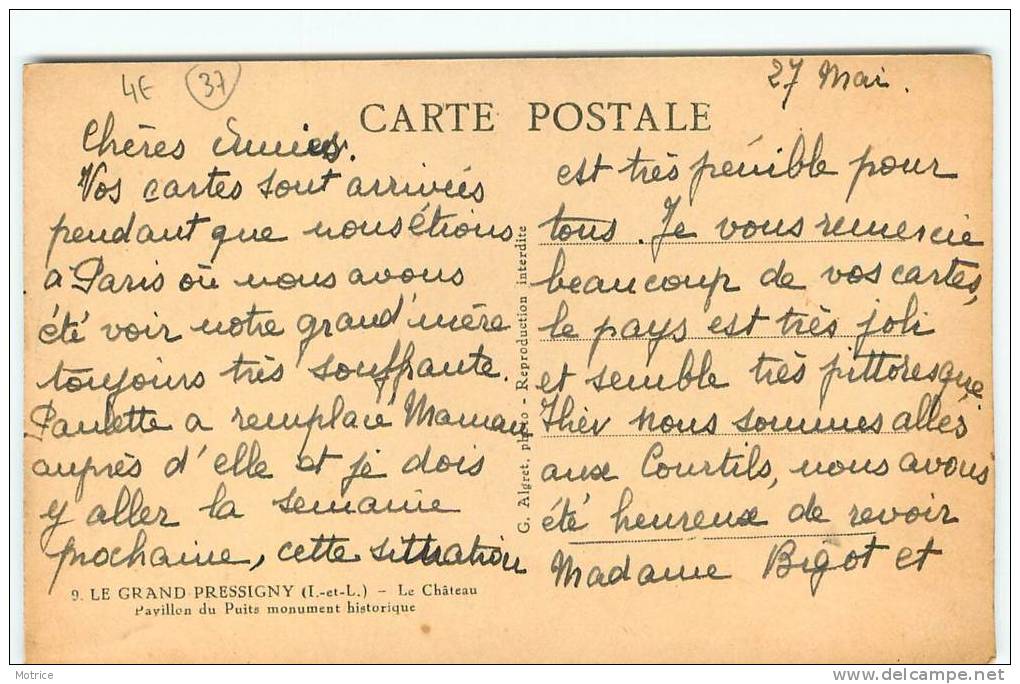 4E
37
27 Mai.
CARTE POSTALE
Chères amies.
Vos cartes sont arrivées
pendant que nous étions
à Paris où nous avons
été voir notre grand'mère
toujours très souffrante.
Paulette a remplacé Maman
auprès d'elle et je dois
y aller la semaine
prochaine, cette situation
9. LE GRAND PRESSIGNY (I.-et-L.) - Le Château
Pavillon du Puits monument historique
G. Algret, photo - Reproduction interdite
est très pénible pour
tous. Je vous remercie
beaucoup de vos cartes,
le pays est très joli
et semble très pittoresque,
Hier nous sommes allés
aux Courtils, nous avons
été heureux de revoir
Madame Bigot et
Motrice
delcampe.net